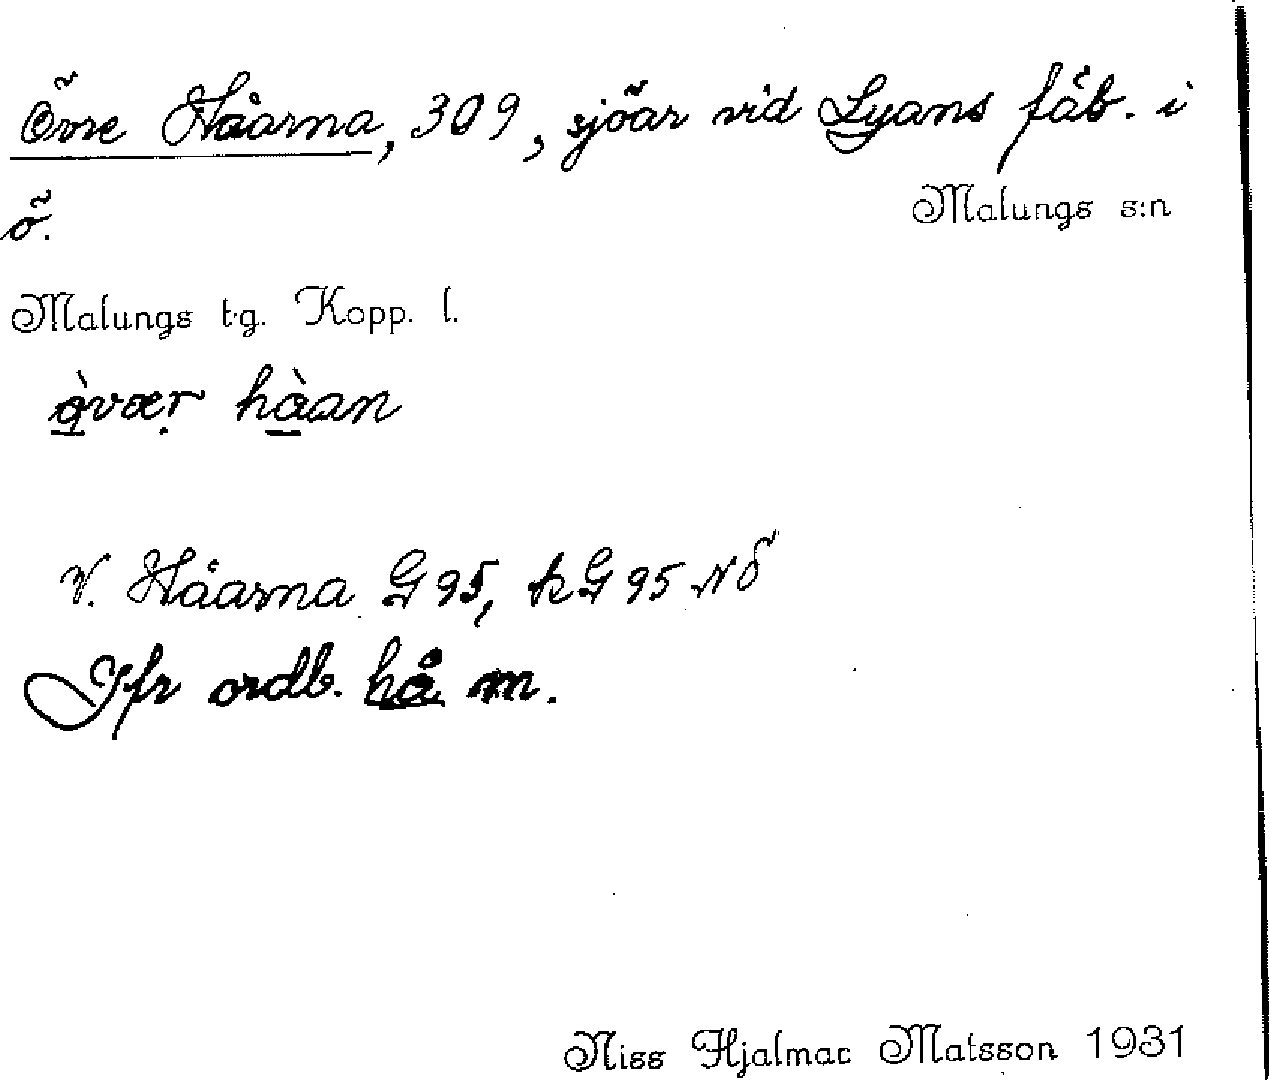 Övre Håarna, 309, sjöar vid Lyans fäb. i
ö. Malungs s:n
Malungs t.g. Kopp. l.
å̀væṛ hå̀an
V. Håarna G 95, k G 95 NÖ
Jfr ordb. hå m.
Niss Hjalmar Matsson 1931